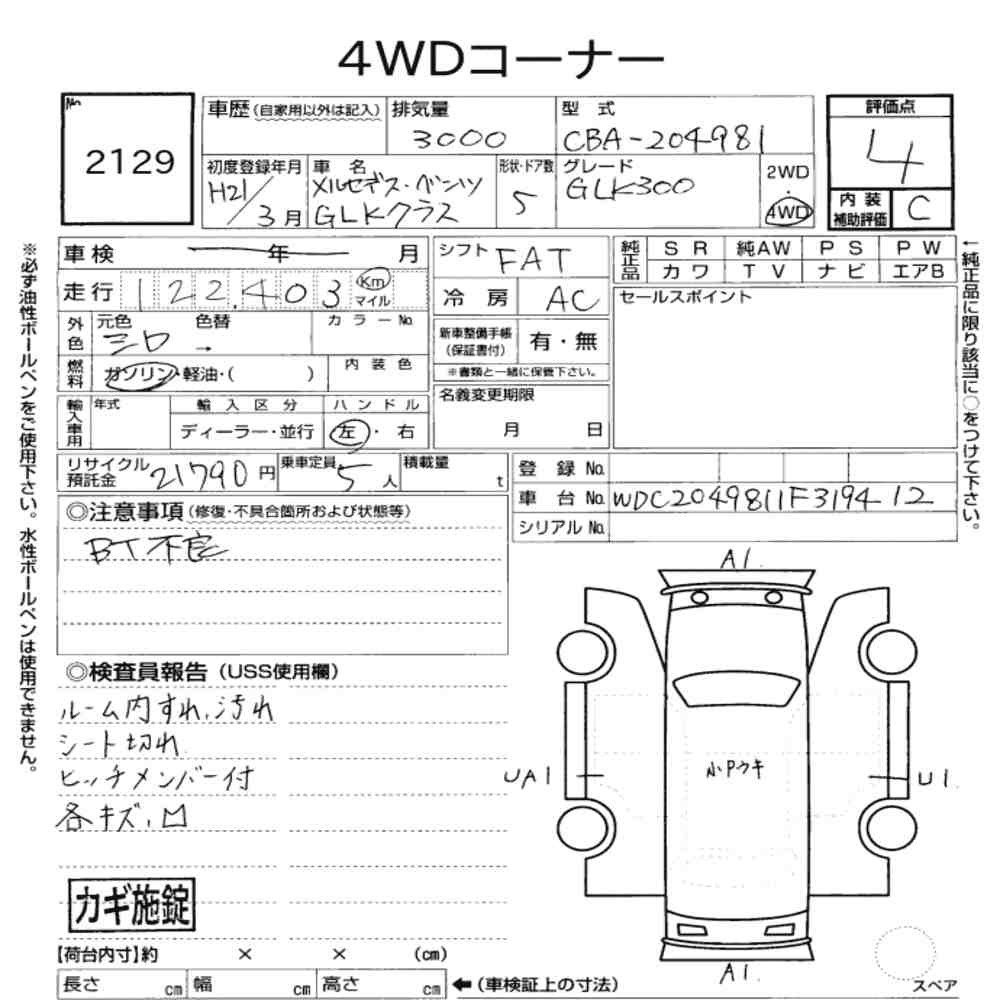 4WDコーナー
No. 2129
車歴(自家用以外は記入)
排気量
3000
型式
CBA-204981
評価点
4
内装補助評価
C
初度登録年月
H21/3月
車名
メルセデス・ベンツ
GLKクラス
形状・ドア数
5
グレード
GLK300
2WD
・
4WD
車検 年 月
走行 122,403 Km マイル
外色
元色 色替 カラーNo.
シロ →
燃料
ガソリン・軽油・( )
内装色
輸入車用
年式
輸入区分
ディーラー・並行
ハンドル
左・右
シフト FAT
冷房 AC
新車整備手帳(保証書付)
有・無
※書類と一緒に保管下さい。
名義変更期限
月 日
純正品
SR 純AW PS PW
カワ TV ナビ エアB
セールスポイント
リサイクル預託金 21790円
乗車定員 5人
積載量 t
登録No.
車台No. WDC2049811F319412
シリアルNo.
◎注意事項(修復・不具合箇所および状態等)
BT不良
◎検査員報告(USS使用欄)
ルーム内すれ、汚れ
シート切れ
ヒッチメンバー付
各キズ、凹
カギ施錠
【荷台内寸】約 × × (cm)
長さ cm 幅 cm 高さ cm
←(車検証上の寸法)
A1.
UA1
小Pウキ
U1.
A1.
スペア
※必ず油性ボールペンをご使用下さい。水性ボールペンは使用できません。
←純正品に限り該当に○をつけて下さい。